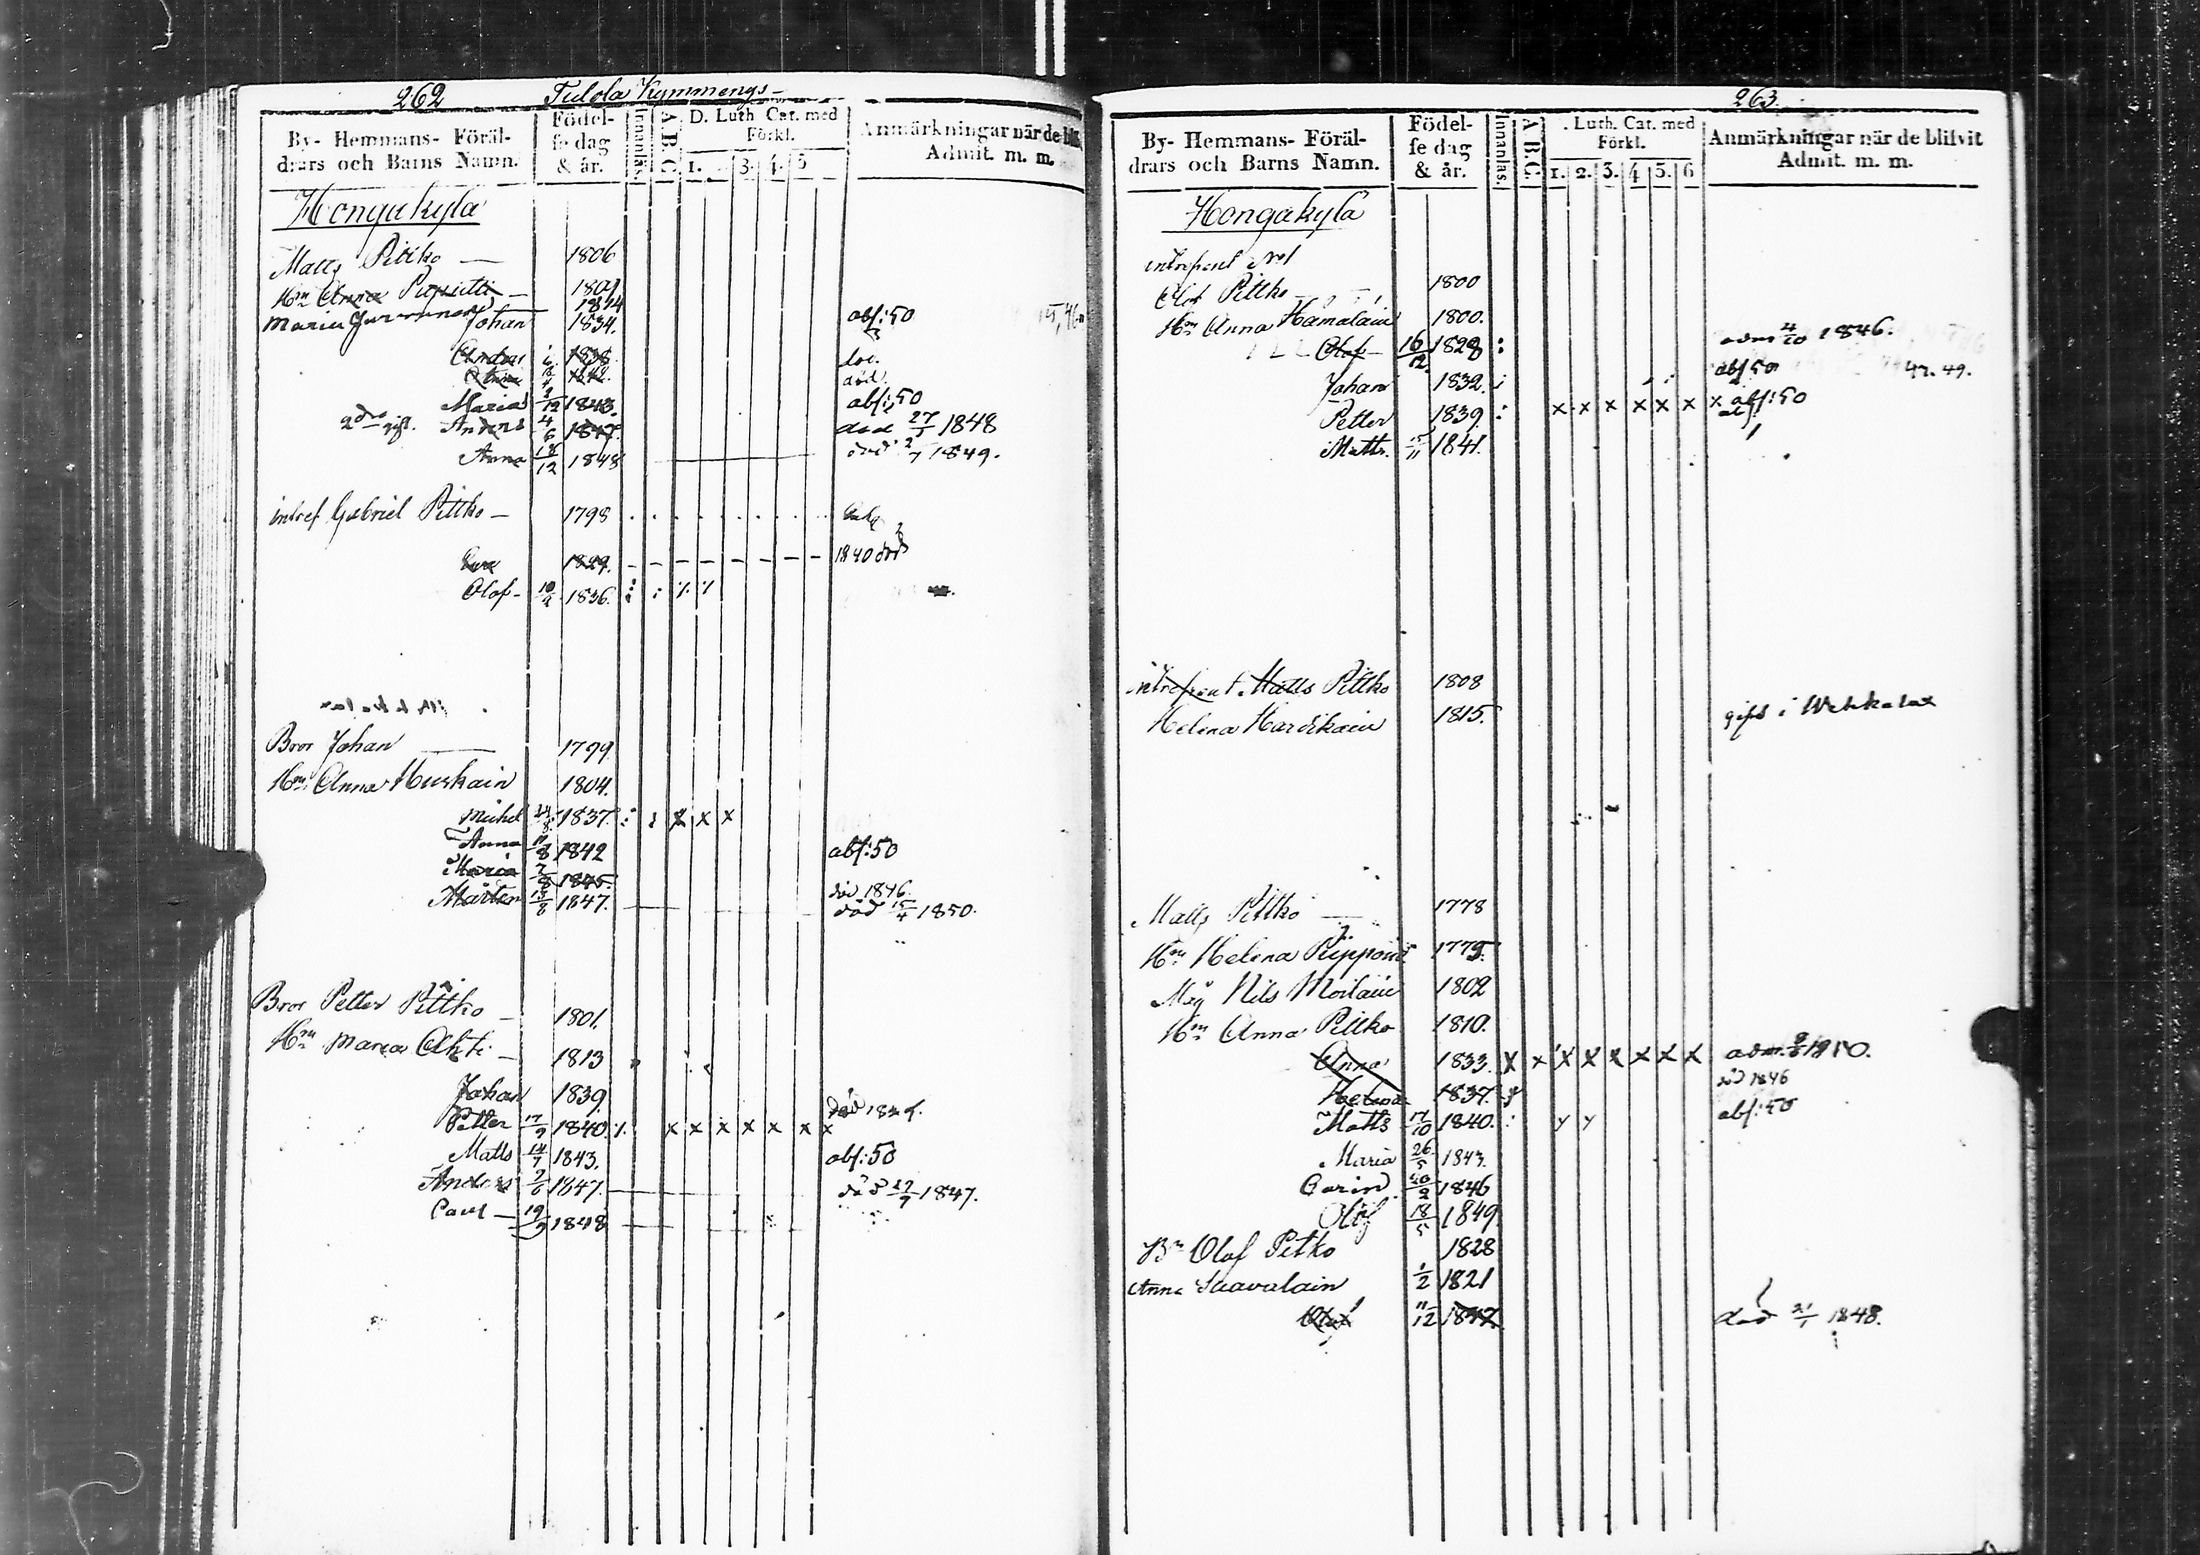 262 Tulola Kymmengs-
By- Hemmans- Föräl-
drars och Barns Namn.
Födel-
se dag
& år.
Innanläs.
A.B.C.
D. Luth Cat. med
Förkl.
1. 3. 4. 5
Anmärkningar när de bli
Admit. m. m.
Hongakylä
Matts Pittko — 1806
Hu Anna 1801
1814
Maria Johan 1834. abs: 50
Anders 1838
död.
Maria 2/12 1843. abs: 50
2dra gift. Anders 4/6 1847. död 27/3 1848
Anna 18/12 1848 död 2/7 1849.
intres Gabriel Pittko — 1798
Eva 1829. 1840 död
Olof - 10/2 1836.
Bror Johan 1799
Hu Anna Huskain 1804.
Michel 24/8 1837. x x x
Anna 11/8 1842 abs: 50
Maria 7/8 1845 död 1846.
Mårten 13/8 1847. död 15/4 1850.
Bror Petter Pittko 1801.
Hu Maria Ahti 1813
Johan 1839.
Petter 17/9 1840. x x x x x x x
Matts 14/7 1843. abs: 50
Anders 2/6 1847. död 27/7 1847.
Paul — 19/9 1848
263.
By- Hemmans- Föräl-
drars och Barns Namn.
Födel-
se dag
& år.
Innanläs.
A.B.C.
. Luth. Cat. med
Förkl.
1. 2. 3. 4 5. 6
Anmärkningar när de blifvit
Admit. m. m.
Hongakylä
Olof Pittko 1800
Hu Anna Hämäläin 1800.
Olof — 16/12 1828 adm 4/10 1846.
Johan 1832. abs 50 47. 49.
Petter 1839. x x x x x x x abs: 50
Matts. 15/11 1841.
intressent Matts Pittko 1808
Helena Hardikain 1815. gift i Wehkalax
Matts Pittko — 1778
Hu Helena Rippoin 1775.
Måg Nils Moilain 1802
Hu Anna Pittko 1810.
Anna 1833. x x x x x x x x
Helena 1837. död 1846
Matts 17/10 1840. abs: 50
Maria 26/5 1843.
Carin 1846
Olof 18/5 1849
Br Olof Pitko 1828
Anna Suavalain 1/2 1821
Olof 11/12 1847. död 21/1 1848.